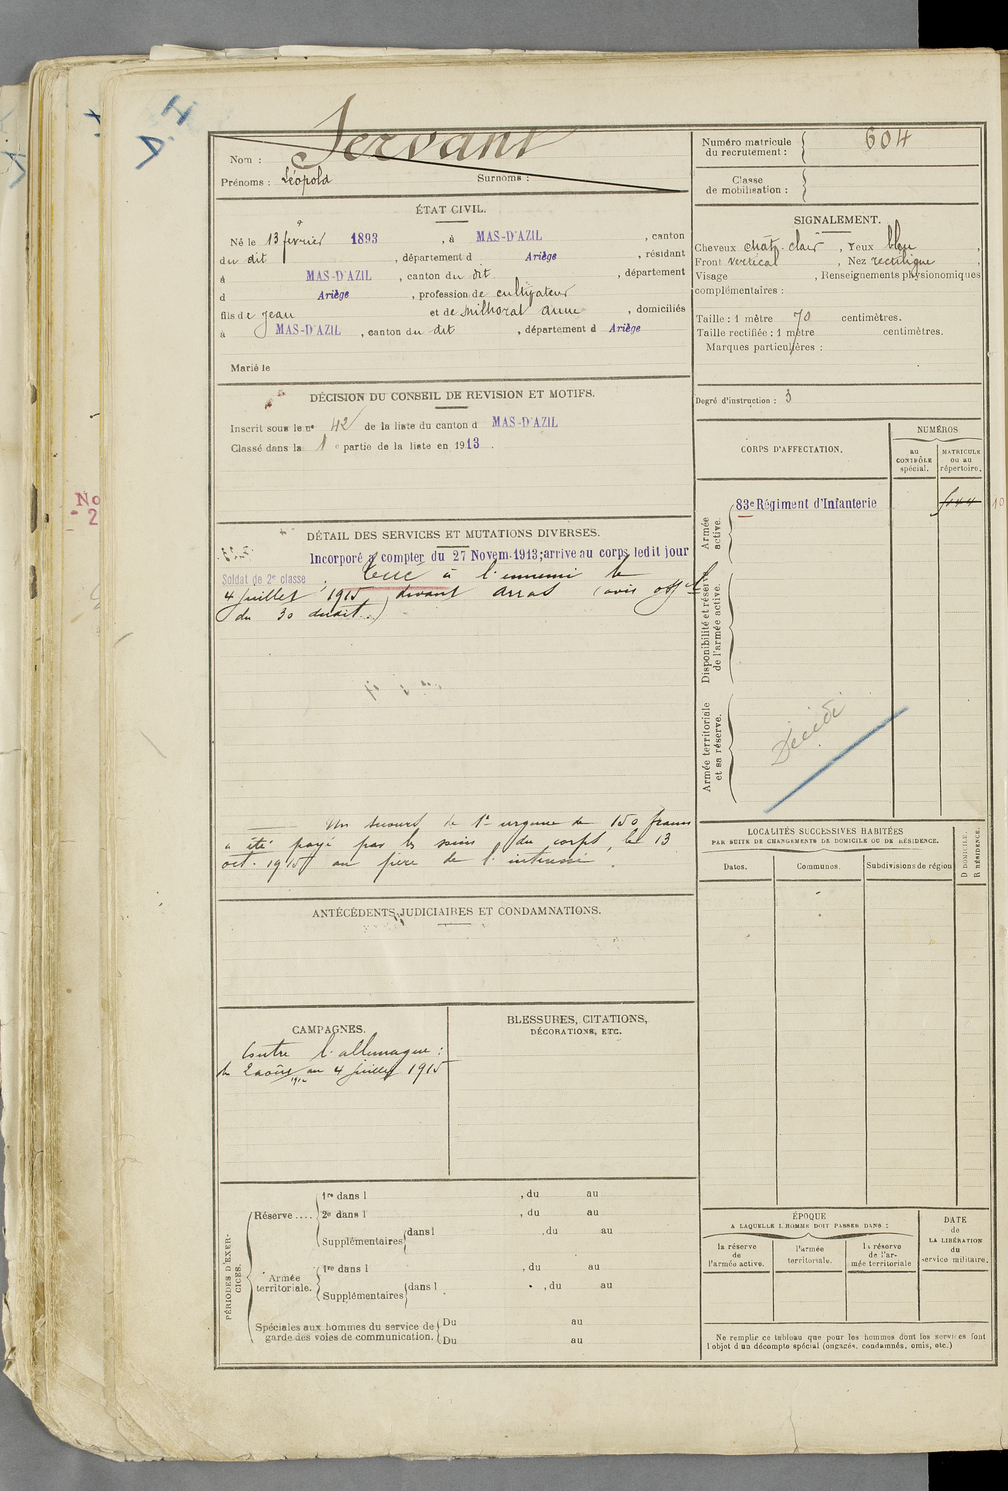 Nom : Servant
Prénoms : Léopold Surnoms :
Numéro matricule du recrutement : 604
Classe de mobilisation :
ÉTAT CIVIL.
Né le 13 février 1893, à MAS-D'AZIL, canton
du dit, département d Ariège, résidant
à MAS-D'AZIL, canton du dit, département
d Ariège, profession de cultivateur
fils de Jean et de Milhorat Anne, domiciliés
à MAS-D'AZIL, canton du dit, département d Ariège
Marié le
SIGNALEMENT.
Cheveux chât. clair, Yeux bleu,
Front vertical, Nez rectiligne,
Visage , Renseignements physionomiques
complémentaires :
Taille : 1 mètre 70 centimètres.
Taille rectifiée : 1 mètre centimètres.
Marques particulières :
Degré d'instruction : 3
DÉCISION DU CONSEIL DE REVISION ET MOTIFS.
Inscrit sous le no 42 de la liste du canton d MAS-D'AZIL
Classé dans la 1e partie de la liste en 1913.
CORPS D'AFFECTATION.
NUMÉROS
au CONTRÔLE spécial.
MATRICULE ou au répertoire.
Armée active.
83e Régiment d'Infanterie
Disponibilité et réserve de l'armée active.
Armée territoriale et sa réserve.
Décédé
DÉTAIL DES SERVICES ET MUTATIONS DIVERSES.
Incorporé à compter du 27 Novem. 1913; arrive au corps ledit jour
Soldat de 2e classe. Tué à l'ennemi le
4 Juillet 1915 devant Arras (avis offel
du 30 dudit.)
Un secours de 1re urgence de 150 francs
a été payé par les soins du corps, le 13
oct. 1915 au père de l'intéressé.
ANTÉCÉDENTS JUDICIAIRES ET CONDAMNATIONS.
LOCALITÉS SUCCESSIVES HABITÉES
PAR SUITE DE CHANGEMENTS DE DOMICILE OU DE RÉSIDENCE.
Dates.
Communes.
Subdivisions de région
D DOMICILE.
R RÉSIDENCE.
CAMPAGNES.
Contre l'allemagne :
du 2 août 1914 au 4 juillet 1915
BLESSURES, CITATIONS,
DÉCORATIONS, ETC.
PÉRIODES D'EXERCICES.
Réserve....
1re dans l , du au
2e dans l , du au
Supplémentaires dans l , du au
Armée territoriale.
1re dans l , du au
Supplémentaires dans l , du au
Spéciales aux hommes du service de
garde des voies de communication.
Du au
Du au
ÉPOQUE
A LAQUELLE L'HOMME DOIT PASSER DANS :
la réserve de l'armée active.
l'armée territoriale.
la réserve de l'armée territoriale
DATE de LA LIBÉRATION du service militaire.
Ne remplir ce tableau que pour les hommes dont les services font
l'objet d'un décompte spécial (engagés, condamnés, omis, etc.)